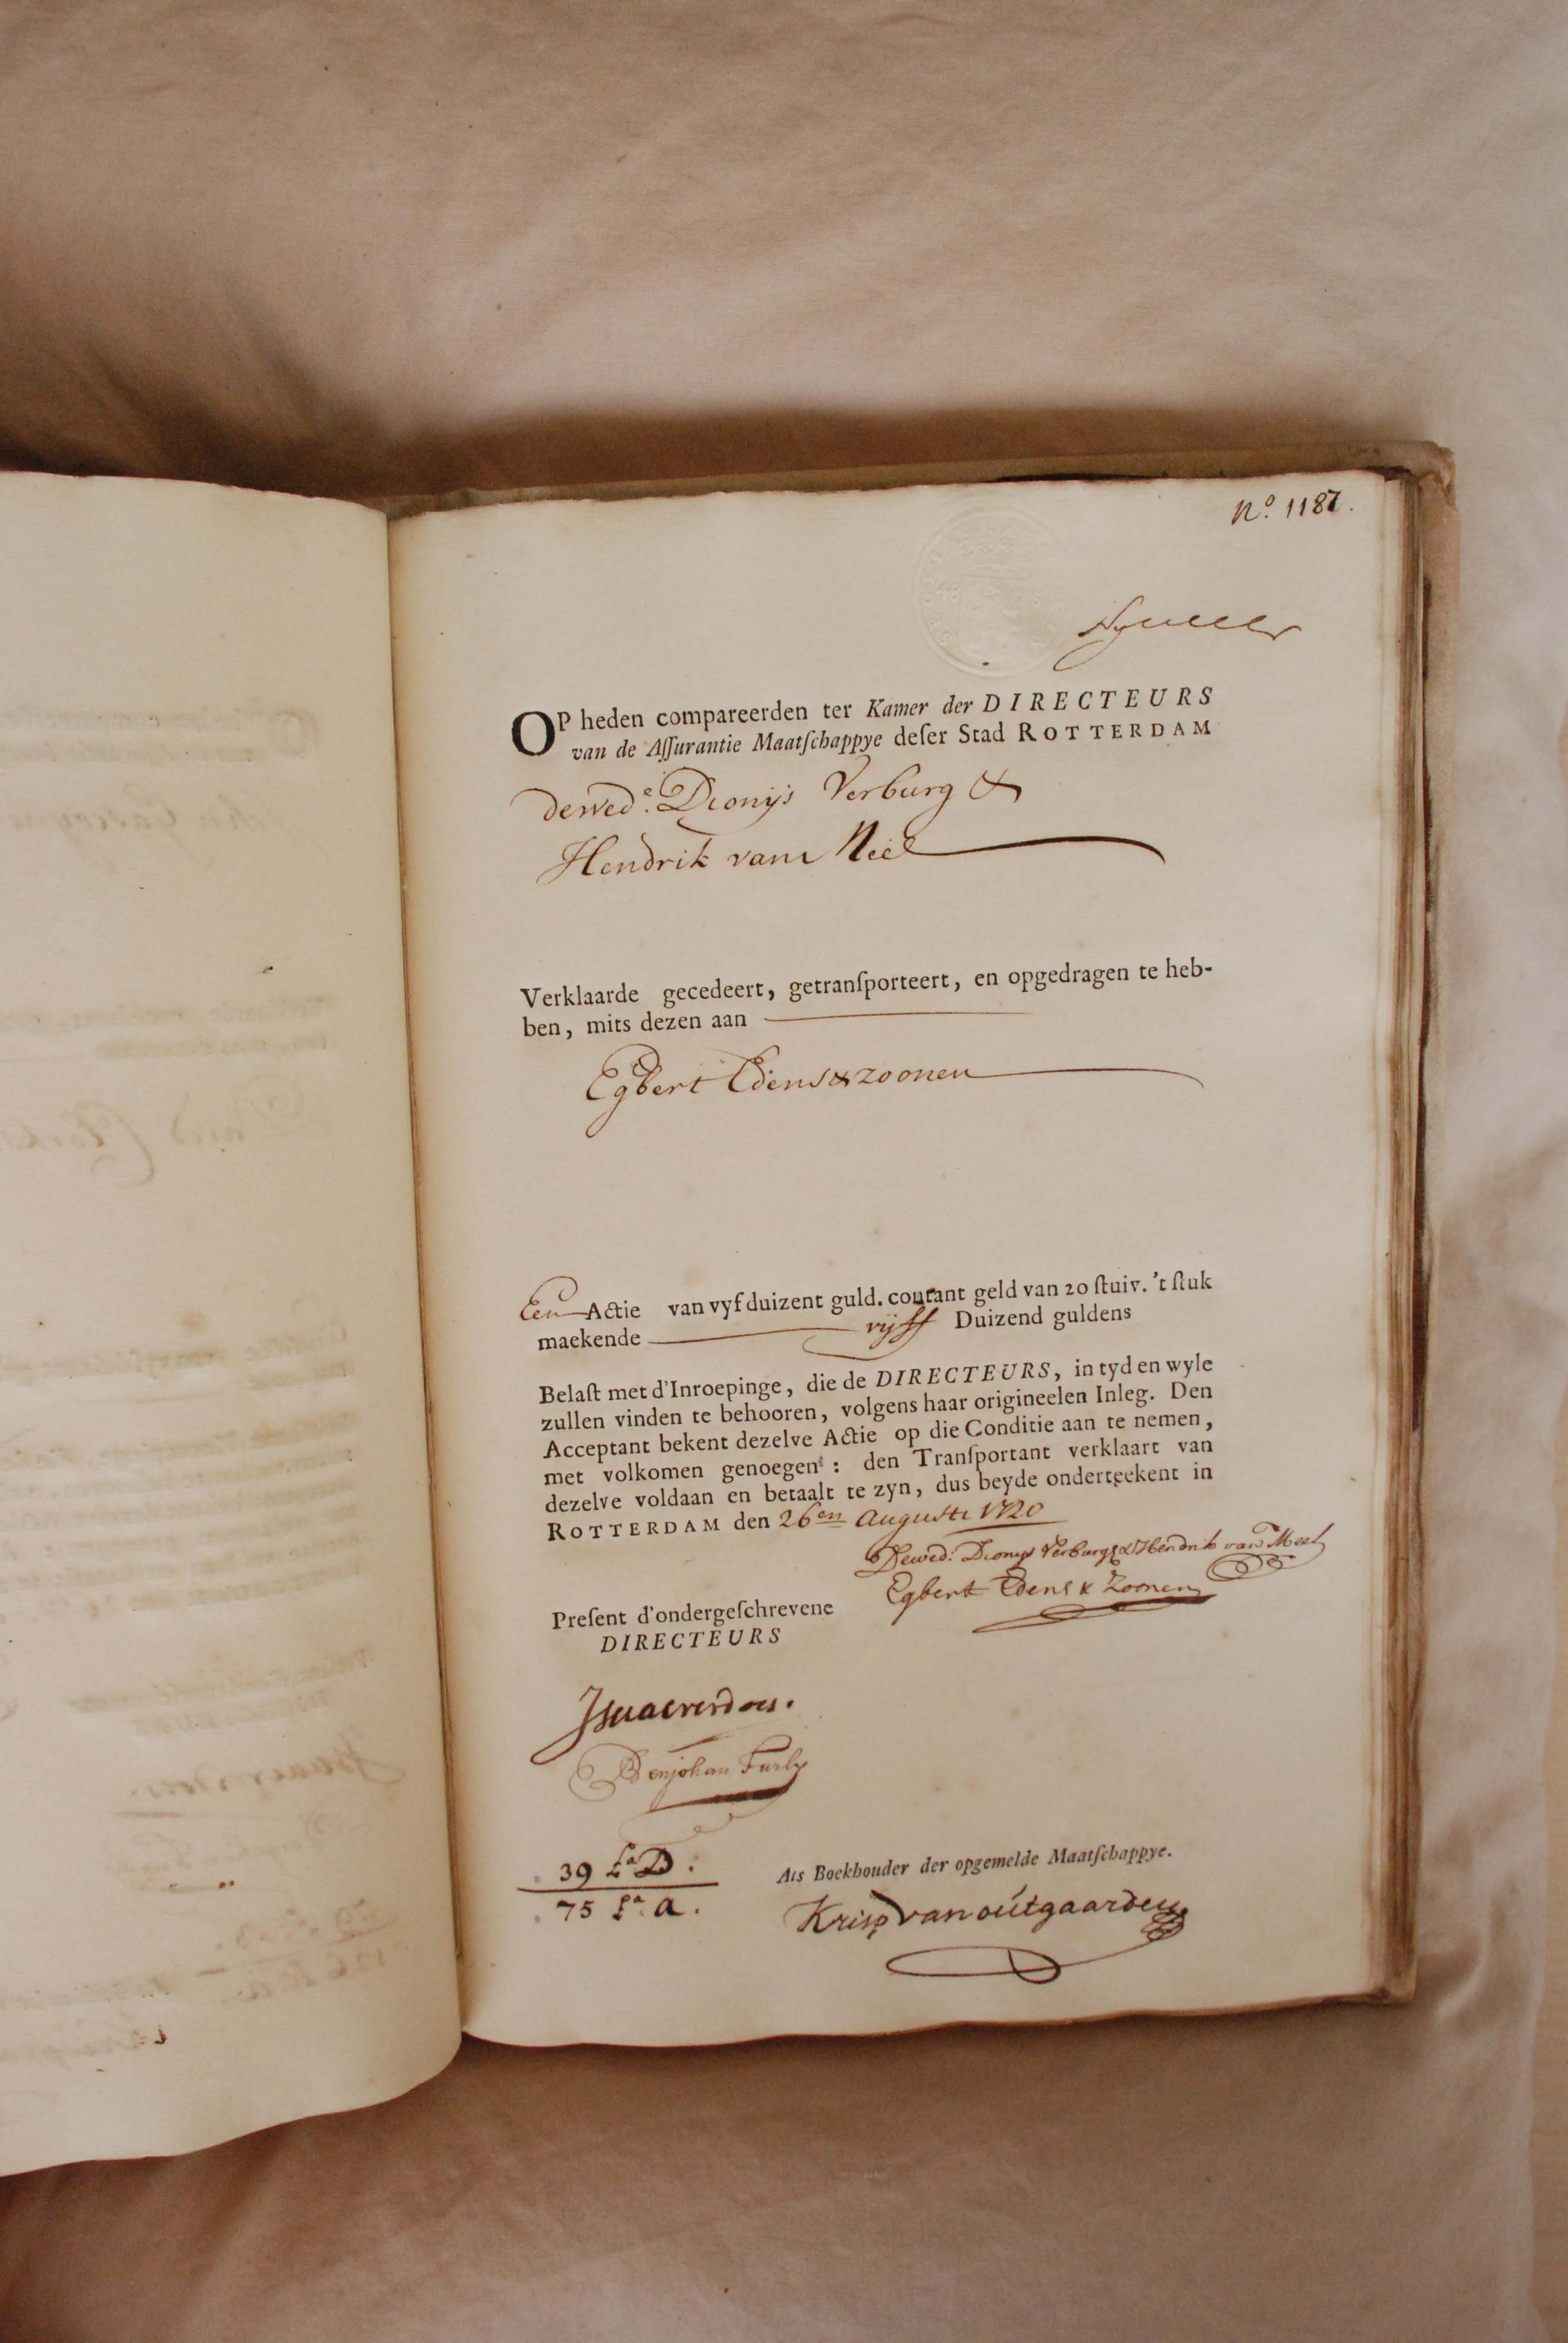 Nº. 1187.
OP heden compareerden ter Kamer der DIRECTEURS
van de Aſſurantie Maatſchappye deſer Stad ROTTERDAM
dewed.ᵉ Dionijs Verburg &
Hendrik van Meel
Verklaarde gecedeert, getranſporteert, en opgedragen te heb-
ben, mits dezen aan
Egbert Edens & zoonen
Een Actie van vyf duizent guld. courant geld van 20 ſtuiv. 't ſtuk
maekende vijff Duizend guldens
Belaſt met d'Inroepinge, die de DIRECTEURS, in tyd en wyle
zullen vinden te behooren, volgens haar origineelen Inleg. Den
Acceptant bekent dezelve Actie op die Conditie aan te nemen,
met volkomen genoegen: den Tranſportant verklaart van
dezelve voldaan en betaalt te zyn, dus beyde onderteekent in
ROTTERDAM den 26en Augusti 1720
Dewed: Dionys Verburg & Hendrik van Meel
Egbert Edens & Zoonen
Preſent d'ondergeſchrevene
DIRECTEURS
Benjohan Furly
39 Lª D.
75 Lª. a.
Als Boekhouder der opgemelde Maatſchappye.
Krisp van outgaarden